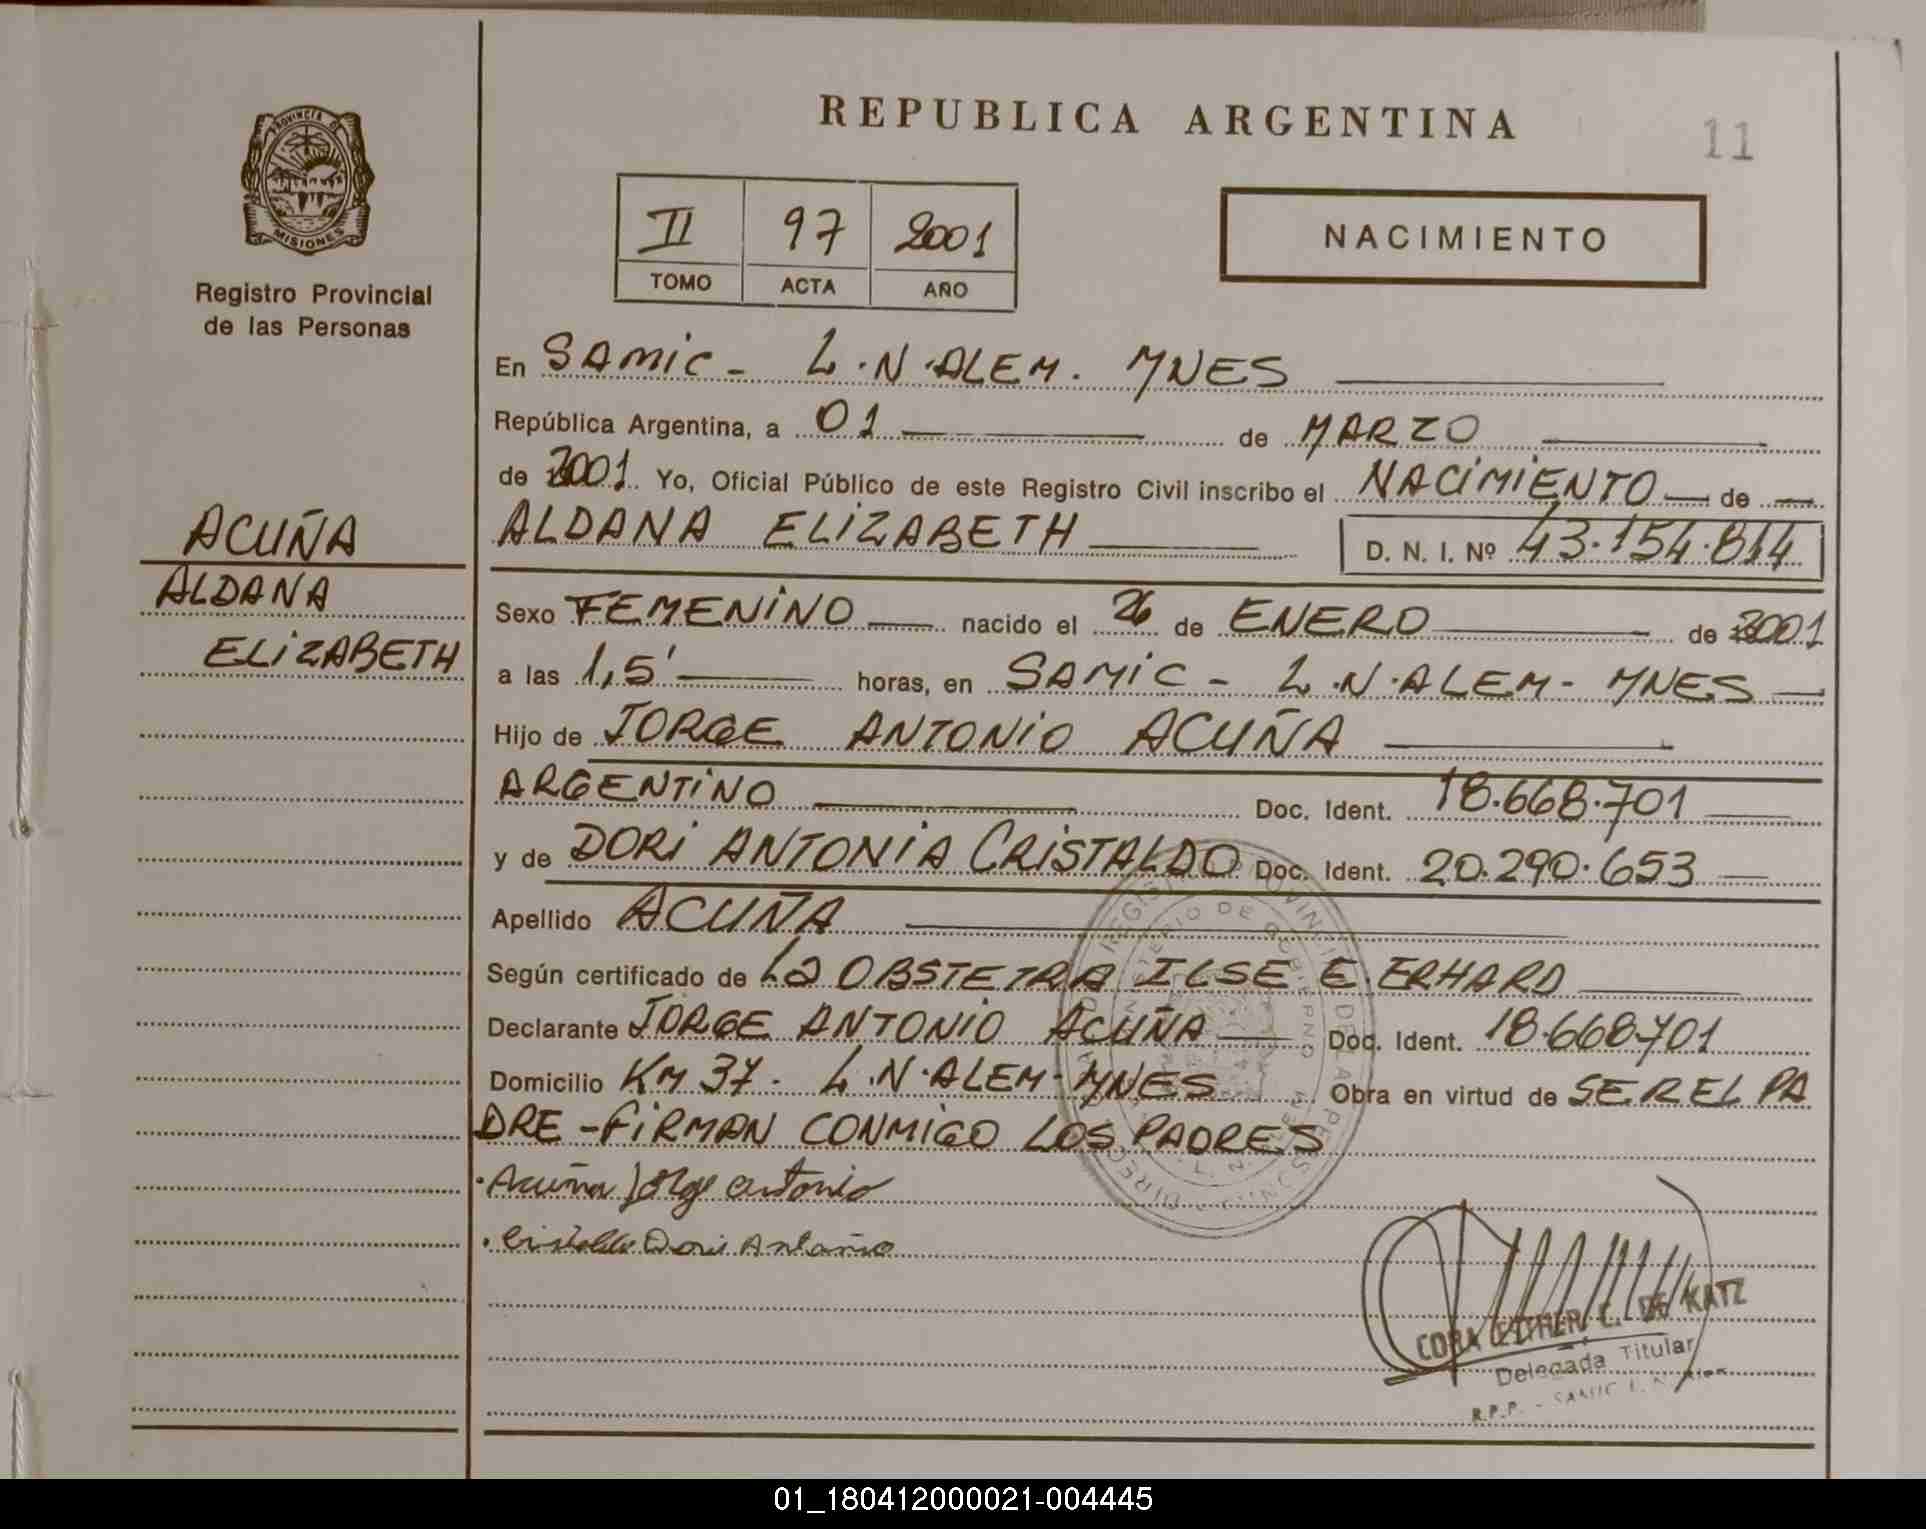 REPUBLICA ARGENTINA
11
PROVINCIA DE
MISIONES
Registro Provincial
de las Personas
II 97 2001
TOMO ACTA AÑO
NACIMIENTO
En SAMIC - L.N.ALEM. MNES
República Argentina, a 01 de MARZO
de 2001 Yo, Oficial Público de este Registro Civil inscribo el NACIMIENTO de
ALDANA ELIZABETH D. N. I. Nº 43.154.814
ACUÑA
ALDANA
ELIZABETH
Sexo FEMENINO nacido el 26 de ENERO de 2001
a las 1,5' horas, en SAMIC - L.N.ALEM - MNES
Hijo de JORGE ANTONIO ACUÑA
ARGENTINO Doc. Ident. 18.668.701
y de DORI ANTONIA CRISTALDO Doc. Ident. 20.290.653
Apellido ACUÑA
Según certificado de La OBSTETRA ILSE E. ERHARD
Declarante JORGE ANTONIO ACUÑA Doc. Ident. 18.668.701
Domicilio KM 37. L.N.ALEM - MNES Obra en virtud de SER EL PA
DRE - FIRMAN CONMIGO LOS PADRES
Acuña Jorge antonio
Cristaldo Dori Antonia
CORA ESTHER C. DE KATZ
Delegada Titular
R.P.P. - SAMIC L. N.
01_180412000021-004445